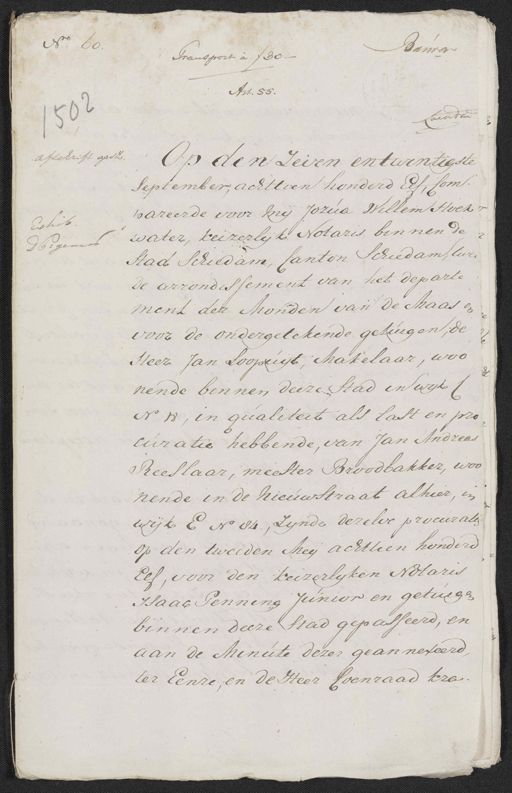 Nro 60.
Transport à f 80 —
Art. 55.
1502
afschrift
Op den Zeven en twintigste
September, achttien honderd Elf, Com„
pareerde voor mij Jozúa Willem Stoek
water, keizerlijk Notaris binnen de
Stad Schiedam, Canton Schiedam, twe
de arrondissement van het departe
ment der Monden van de Maas en
voor de ondergetekende getuigen, de
Heer Jan Loopuijt, Makelaar, woo
nende binnen deeze Stad in wijk C
No 18, in qúaliteit als last en pro
cúratie hebbende, van Jan Andreas
Reeslaar, meester Broodbakker, woo
nende in de Nieuwstraat alhier, in
wijk E No 84, Zijnde dezelve procuratie
op den tweeden Meij achttien honderd
Elf, voor den keizerlijken Notaris
Isaac Penning Júnior en getuigen
binnen deeze Stad gepasseerd, en
aan de Minúte dezer geannexeerd,
ter Eenre, en de Heer Coenraad kra„